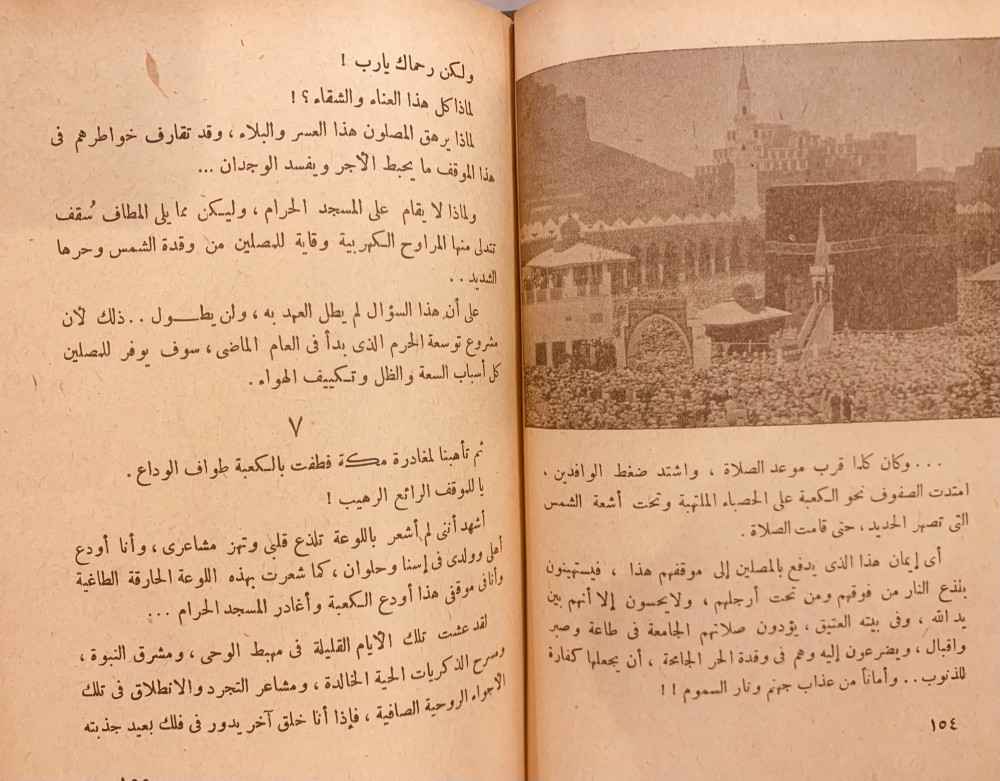 ...وكان كلما قرب موعد الصلاة ، واشتد ضغط الوافدين ،
امتدت الصفوف نحو الكعبة على الحصباء الملتهبة وتحت أشعة الشمس
التى تصهر الحديد، حتى قامت الصلاة .
أى إيمان هذا الذى يدفع بالمصلين إلى موقفهم هذا ، فيستهينون
بلذع النار من فوقهم ومن تحت أرجلهم ، ولايحسون إلا أنهم بين
يد الله ، وفى بيته العتيق ، يؤدون صلاتهم الجامعة فى طاعة وصبر
واقبال ، ويضرعون إليه وهم فى وقدة الحر الجامحة ، أن يجعلها كفارة
للذنوب.. وأماناً من عذاب جهنم ونار السموم !!
١٥٤
ولكن رحماك يارب !
لماذا كل هذا العناء والشقاء ؟ !
لماذا يرهق المصلون هذا العسر والبلاء ، وقد تقارف خواطرهم فى
هذا الموقف ما يحبط الأجر ويفسد الوجدان ...
ولماذا لا يقام على المسجد الحرام ، وليكن مما يلى المطاف سُقف
تتدلى منها المراوح الكهربية وقاية للمصلين من وقدة الشمس وحرها
الشديد . .
على أن هذا السؤال لم يطل العهد به ، ولن يطــول . . ذلك لأن
مشروع توسعة الحرم الذى بدأ فى العام الماضى ، سوف يوفر للمصلين
كل أسباب السعة والظل وتكييف الهواء .
٧
ثم تأهبنا لمغادرة مكة فطفت بالكعبة طواف الوداع .
يا للموقف الرائع الرهيب !
أشهد أننى لم أشعر باللوعة تلذع قلبى وتهز مشاعرى ، وأنا أودع
أهلى وولدى فى إسنا وحلوان ، كما شعرت بهذه اللوعة الحارقة الطاغية
وأنا فى موقفى هذا أودع الكعبة وأغادر المسجد الحرام ...
لقد عشت تلك الأيام القليلة فى مهبط الوحى ، ومشرق النبوة ،
ومسرح الذكريات الحية الخالدة ، ومشاعر التجرد والانطلاق فى تلك
الأجواء الروحية الصافية ، فإذا أنا خلق آخر يدور فى فلك بعيد جذبته